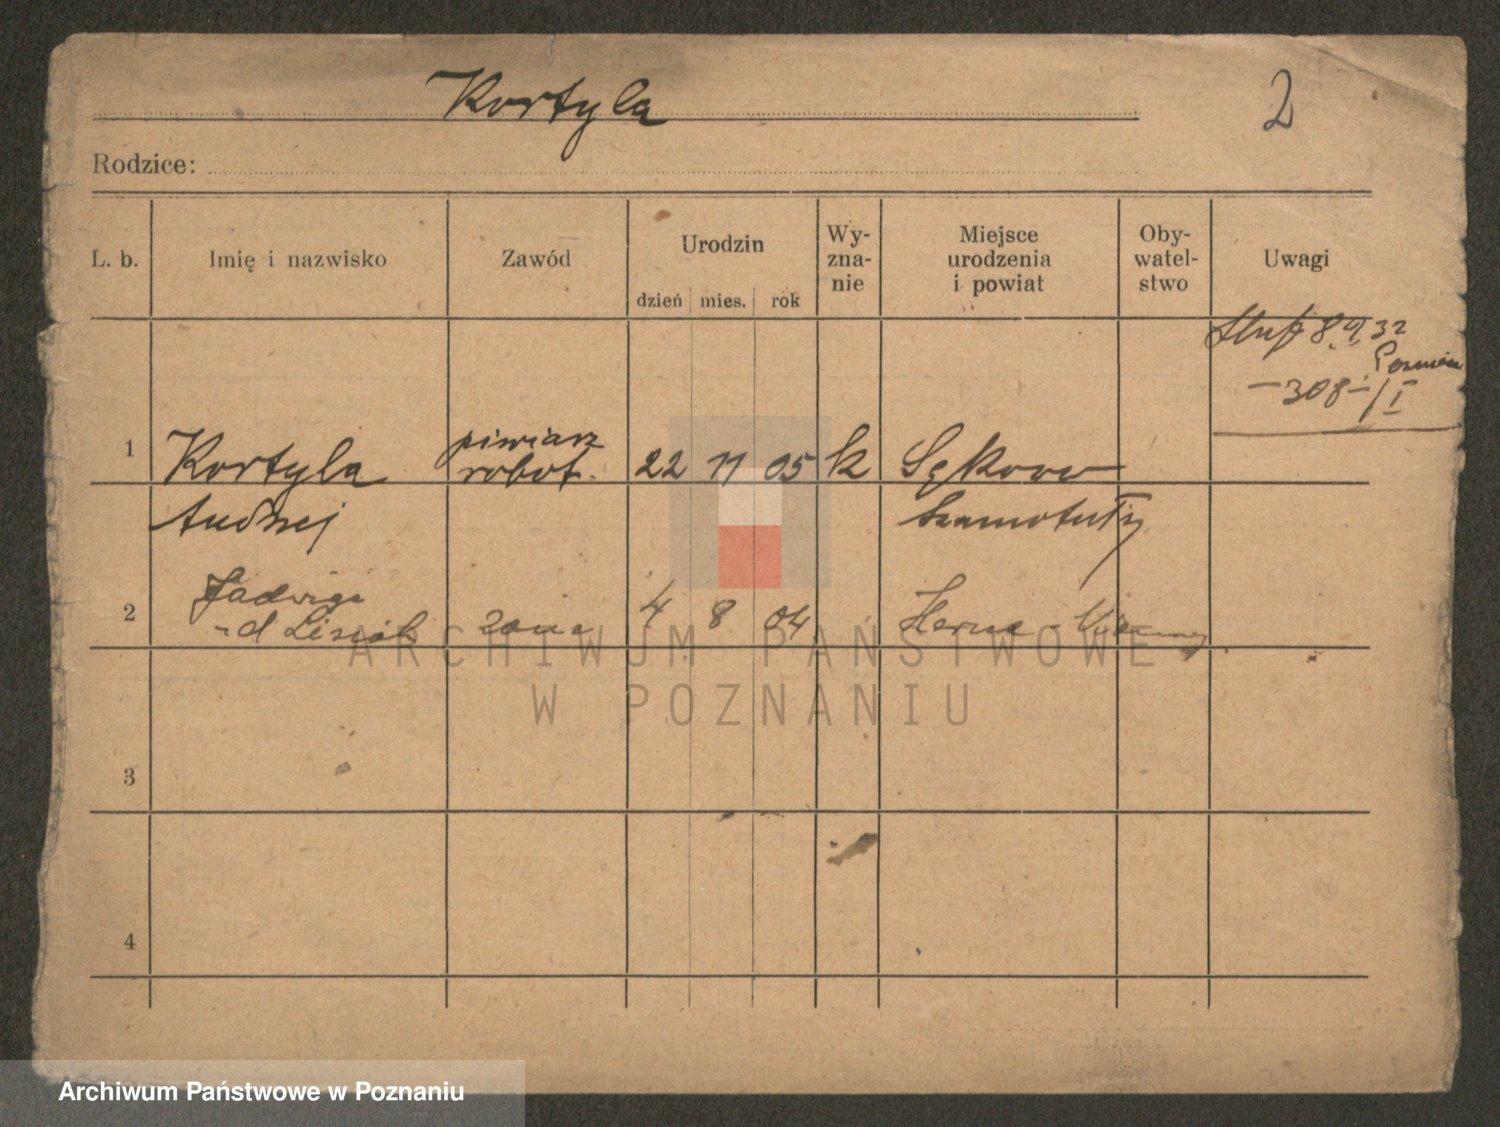 Kortyla
2
Rodzice:
L. b. Imię i nazwisko Zawód Urodzin dzień mies. rok Wy-
zna-
nie Miejsce
urodzenia
i powiat Oby-
watel-
stwo Uwagi
8.9.32
Poznań
—308—/I
1 Kortyla piwiarz
robot. 22 11 05 k Sękowo
Andrzej Szamotuły
Jadwiga
2 żona 4 8 04 Herne
3
4
ARCHIWUM PAŃSTWOWE
W POZNANIU
Archiwum Państwowe w Poznaniu